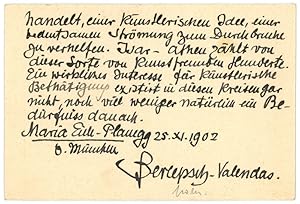 handelt, einer künstlerischen Idee, einer
bedeutsamen Strömung zum Durchbruche
zu verhelfen. Isar-Athen zählt von
dieser Sorte von Kunstfreunden Hunderte.
Ein wirkliches Interesse für künstlerische
Bethätigung existirt in diesen Kreisen gar
nicht, noch viel weniger natürlich ein Be-
dürfniss danach.
Maria Eich-Planegg 25.XI.1902
b. München
Berlepsch-Valendas.